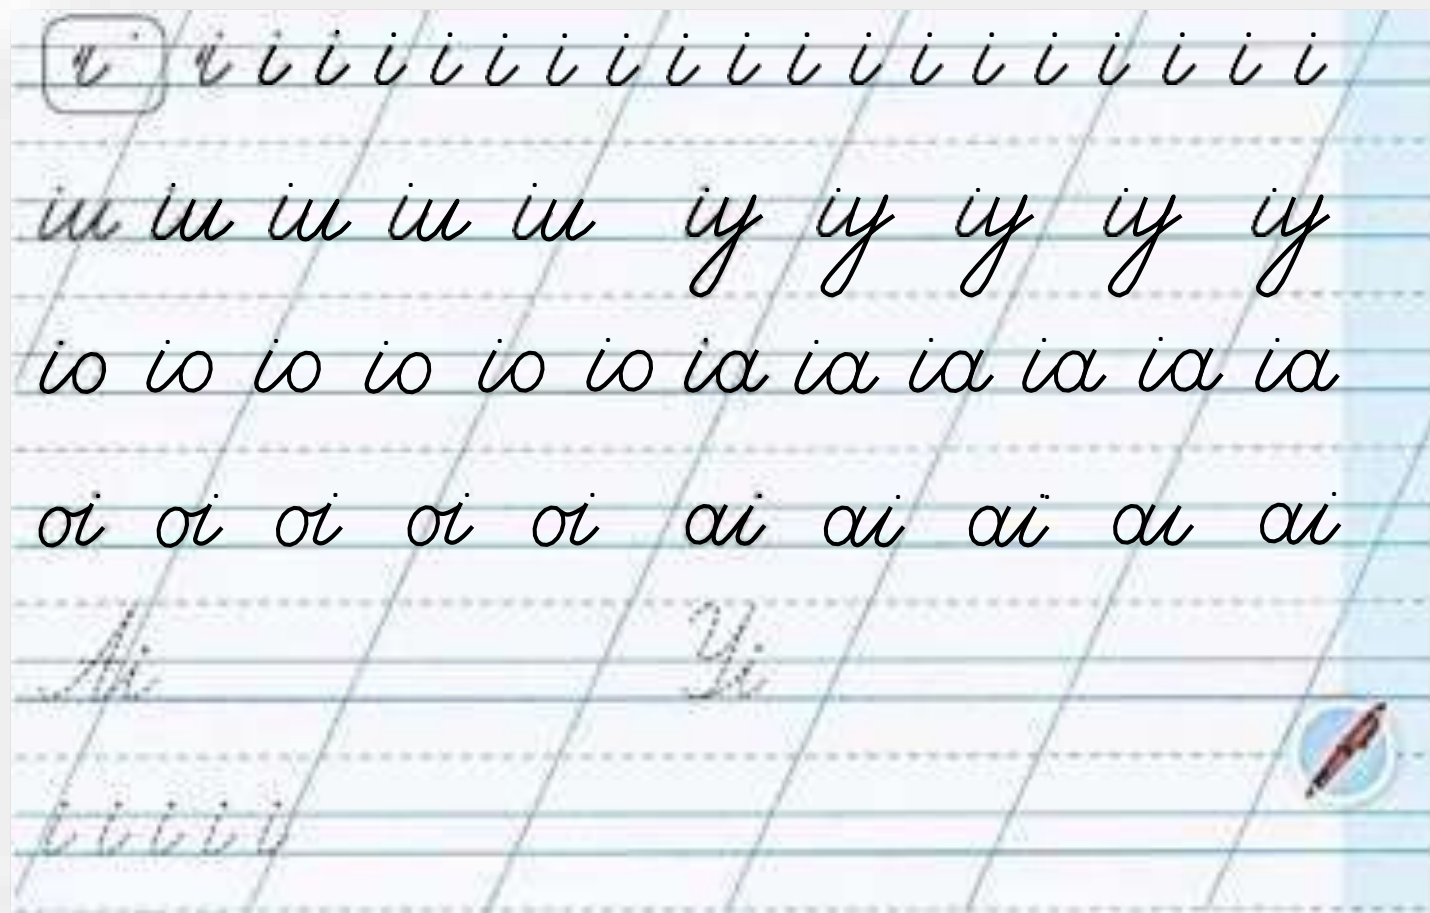 і і і і і і і і і і і і і і і і і і і і
іи іи іи іи іи іу іу іу іу іу
іо іо іо іо іо іо іа іа іа іа іа іа
оі оі оі оі оі аі аі аї аı аі
Аі Уі
і і і і і